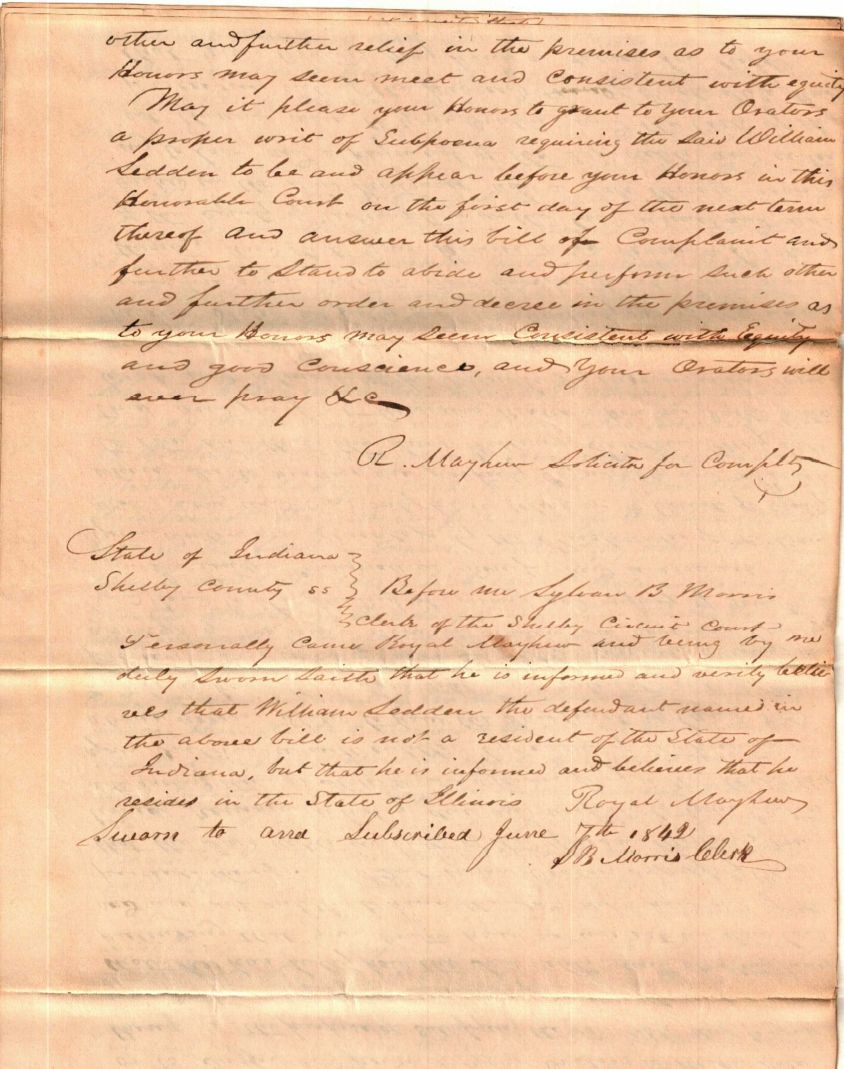 other and further relief in the premises as to your
Honors may seem meet and consistent with equity
May it please your Honors to grant to your Orators
a proper writ of Subpoena requiring the said William
Sedden to be and appear before your Honors in this
Honorable Court on the first day of the next term
thereof and answer this bill of Complaint and
further to stand to abide and perform such other
and further order and decree in the premises as
to your Honors may seem Consistent with Equity
and good conscience, and your Orators will
ever pray &c
R. Mayhew Solicitor for Complts
State of Indiana
Shelby County ss } Before me Sylvan B Morris
Clerk of the Shelby Circuit Court
Personally came Royal Mayhew and being by me
duly sworn saith that he is informed and verily belie
ves that William Sedden the defendant named in
the above bill is not a resident of the State of
Indiana, but that he is informed and believes that he
resides in the State of Illinois Royal Mayhew
Sworn to and Subscribed June 7th 1842
S B Morris Clerk